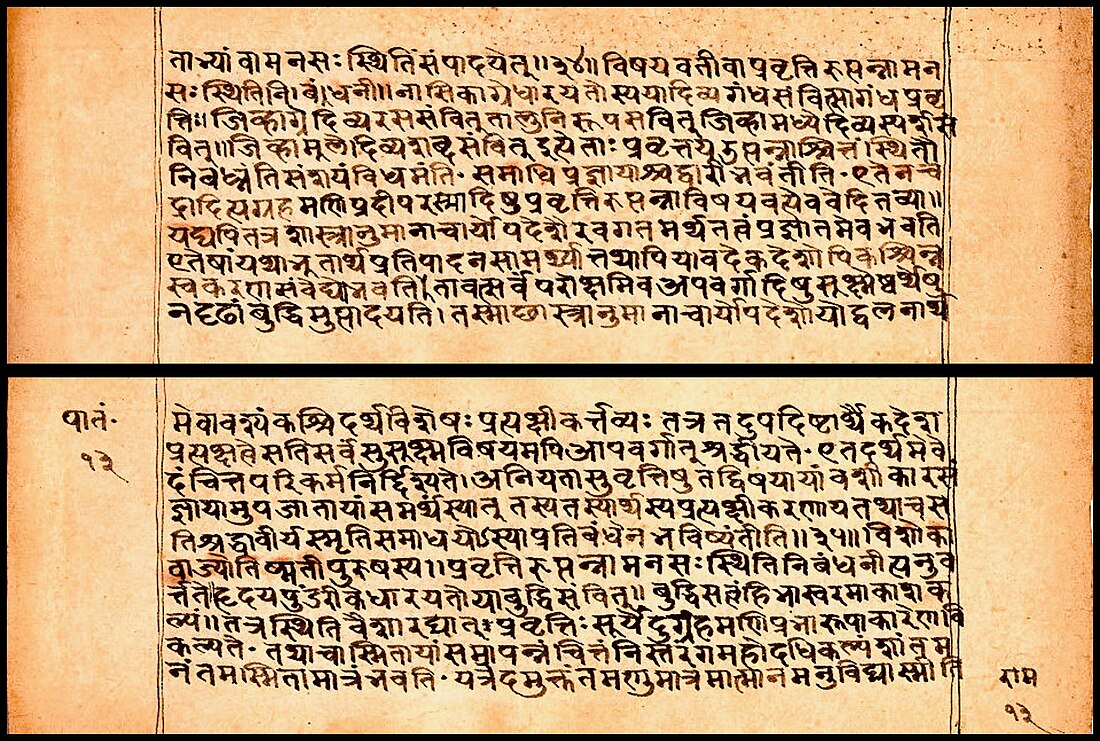 ताभ्यां वा मनसः स्थितिं संपादयेत् ॥३४॥ विषयवती वा प्रवृत्तिरुत्पन्ना मन
सः स्थितिनिबंधनी ॥ नासिकाग्रे धारयतोस्य या दिव्यगंधसंवित्सा गंधप्रवृ
त्तिः॥ जिव्हाग्रे दिव्यरससंवित् तालुनि रूपसंवित् जिव्हामध्ये दिव्यस्पर्शसं
वित्॥ जिव्हामूले दिव्यशब्दसंवित्
निबध्नंति संशयं विधमंति· समाधिप्रज्ञायाश्च द्वारीभवंतीति· एतेन चं
द्रादित्यग्रहमणिप्रदीपरस्मादिषु प्रवृत्तिरुत्पन्ना विषयवत्येव वेदितव्या॥
यद्यपि तत्र शास्त्रानुमानाचार्योपदेशैरवगतमर्थतत्वं प्रज्ञातमेव भवति
एतेषां यथाभूतार्थप्रतिपादनसामर्थ्यात् तथापि यावदेकदेशोपि कश्चिन्न
स्वकरणसंवेद्यो भवति। तावत्सर्वं परोक्षमिव अपवर्गादिषु सूक्ष्मेष्वर्थेषु
न दृढां बुद्धिमुत्पादयति। तस्माछास्त्रानुमानाचार्योपदेशोपोद्वलनार्थ
पातं·
१३
मेवावश्यं कश्चिदर्थविशेषः प्रत्यक्षीकर्त्तव्यः तत्र तदुपदिष्टार्थैकदेश
प्रत्यक्षत्वे सति सर्वं सुसूक्ष्मविषयमपि आपवर्गात् श्रद्धीयते· एतदर्थमेवे
दं चित्तपरिकर्म निर्द्दिश्यते। अनियतासु वृत्तिषु तद्विषयायां वशीकारसं
ज्ञायामुपजातायां समर्थं स्यात् तस्य तस्यार्थस्य प्रत्यक्षीकरणाय तथाच स
ति श्रद्धावीर्यस्मृतिसमाधयोऽस्याप्रतिबंधेन भविष्यंतीति॥३५॥ विशोका
वा ज्योतिष्मती पुरुषस्य॥ प्रवृत्तिरुत्पन्ना मनसः स्थितिनिबंधनीत्यनुव
र्त्तते हृदयपुंडरीके धारयतो या बुद्धिसंवित्॥ बुद्धिसत्वं हि भास्वरमाकाशक
ल्पं॥ तत्र स्थितिवैशारद्यात् प्रवृत्तिः सूर्येंदुग्रहमणिप्रभारूपाकारेण वि
कल्पते· तथाचास्मितायां समापन्नं चित्तं निस्तरंगमहोदधिकल्पं शांतम
नंतमस्मितामात्रं भवति· यत्रेदमुक्तं तमणुमात्रमात्मानमनुविद्यास्मीति
राम
१३